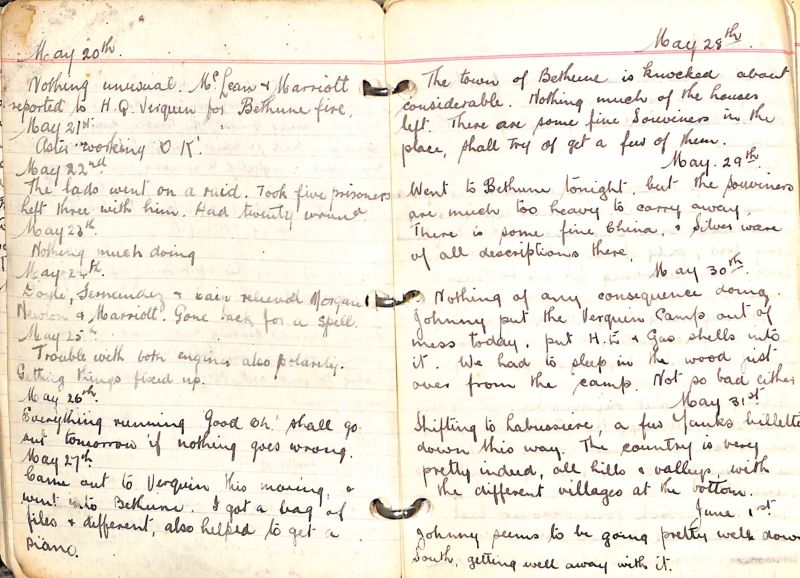 May 20th.
Nothing unusual. McLean & Marriott
reported to H.Q. Verquin for Bethune fire.
May 21st.
Aster working 'O K'.
May 22nd
The lads went on a raid. Took five prisoners
left three with him. Had twenty wound
May 23th.
Nothing much doing
May 24th.
Fernandez & Cain relieved Morgan
Newton & Marriott. Gone back for a spell.
May 25th.
Trouble with both engines also polarity.
Getting things fixed up.
May 26th.
Everything running 'Good Oh.' shall go
out tomorrow if nothing goes wrong.
May 27th.
Came out to Verquin this moring, &
went into Bethune. I got a bag of
files & different, also helped to get a
piano.
May 28th.
The town of Bethune is knocked about
considerable. Nothing much of the houses
left. There are some fine Souviners in the
place, shall try of get a few of them.
May. 29th.
Went to Bethune tonight, but the souviners
are much too heavy to carry away.
There is some fine China, & Silver ware
of all descriptions there.
May 30th.
Nothing of any consequence doing.
Johnny put the Verquin Camp out of
mess today, put H.Es & Gas shells into
it. We had to sleep in the wood just
over from the camp. Not so bad either
May 31st.
Shifting to Labussiere, a few Yanks billette
down this way. The country is very
pretty indeed, all hills & valleys, with
the different villages at the bottom.
June 1st
Johnny seems to be going pretty well down
South, getting well away with it.